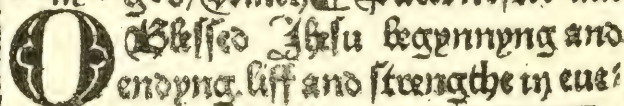 O Blessed Ihesu begynnyng and
endyng. liff and strengthe in eue⸗